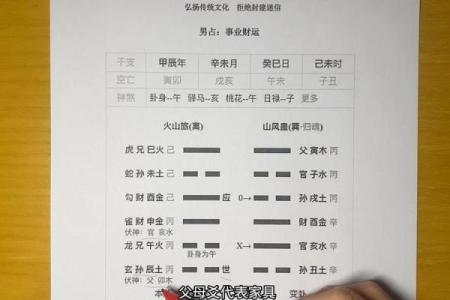 弘扬传统文化 拒绝封建迷信
男占：事业财运
干支 甲辰年 辛未月 癸巳日 己未时
空亡 寅卯 戌亥 午未 子丑
神煞 卦身--午 驿马--亥 桃花--午 日禄--子 更多
火山旅(离) 山风蛊(巽·归魂)
虎 兄 巳火 己 父 寅木 丙
蛇 孙 未土 己 官 子水 丙
勾 财 酉金 己 应 0→ 孙 戌土 丙
雀 财 申金 丙 财 酉金 辛
伏神：官 亥水
龙 兄 午火 丙 X→ 官 亥水 辛
卦身为午
玄 孙 辰土 丙 世 孙 丑土 辛
伏神：父 卯木
本 变卦
父母爻代表家具